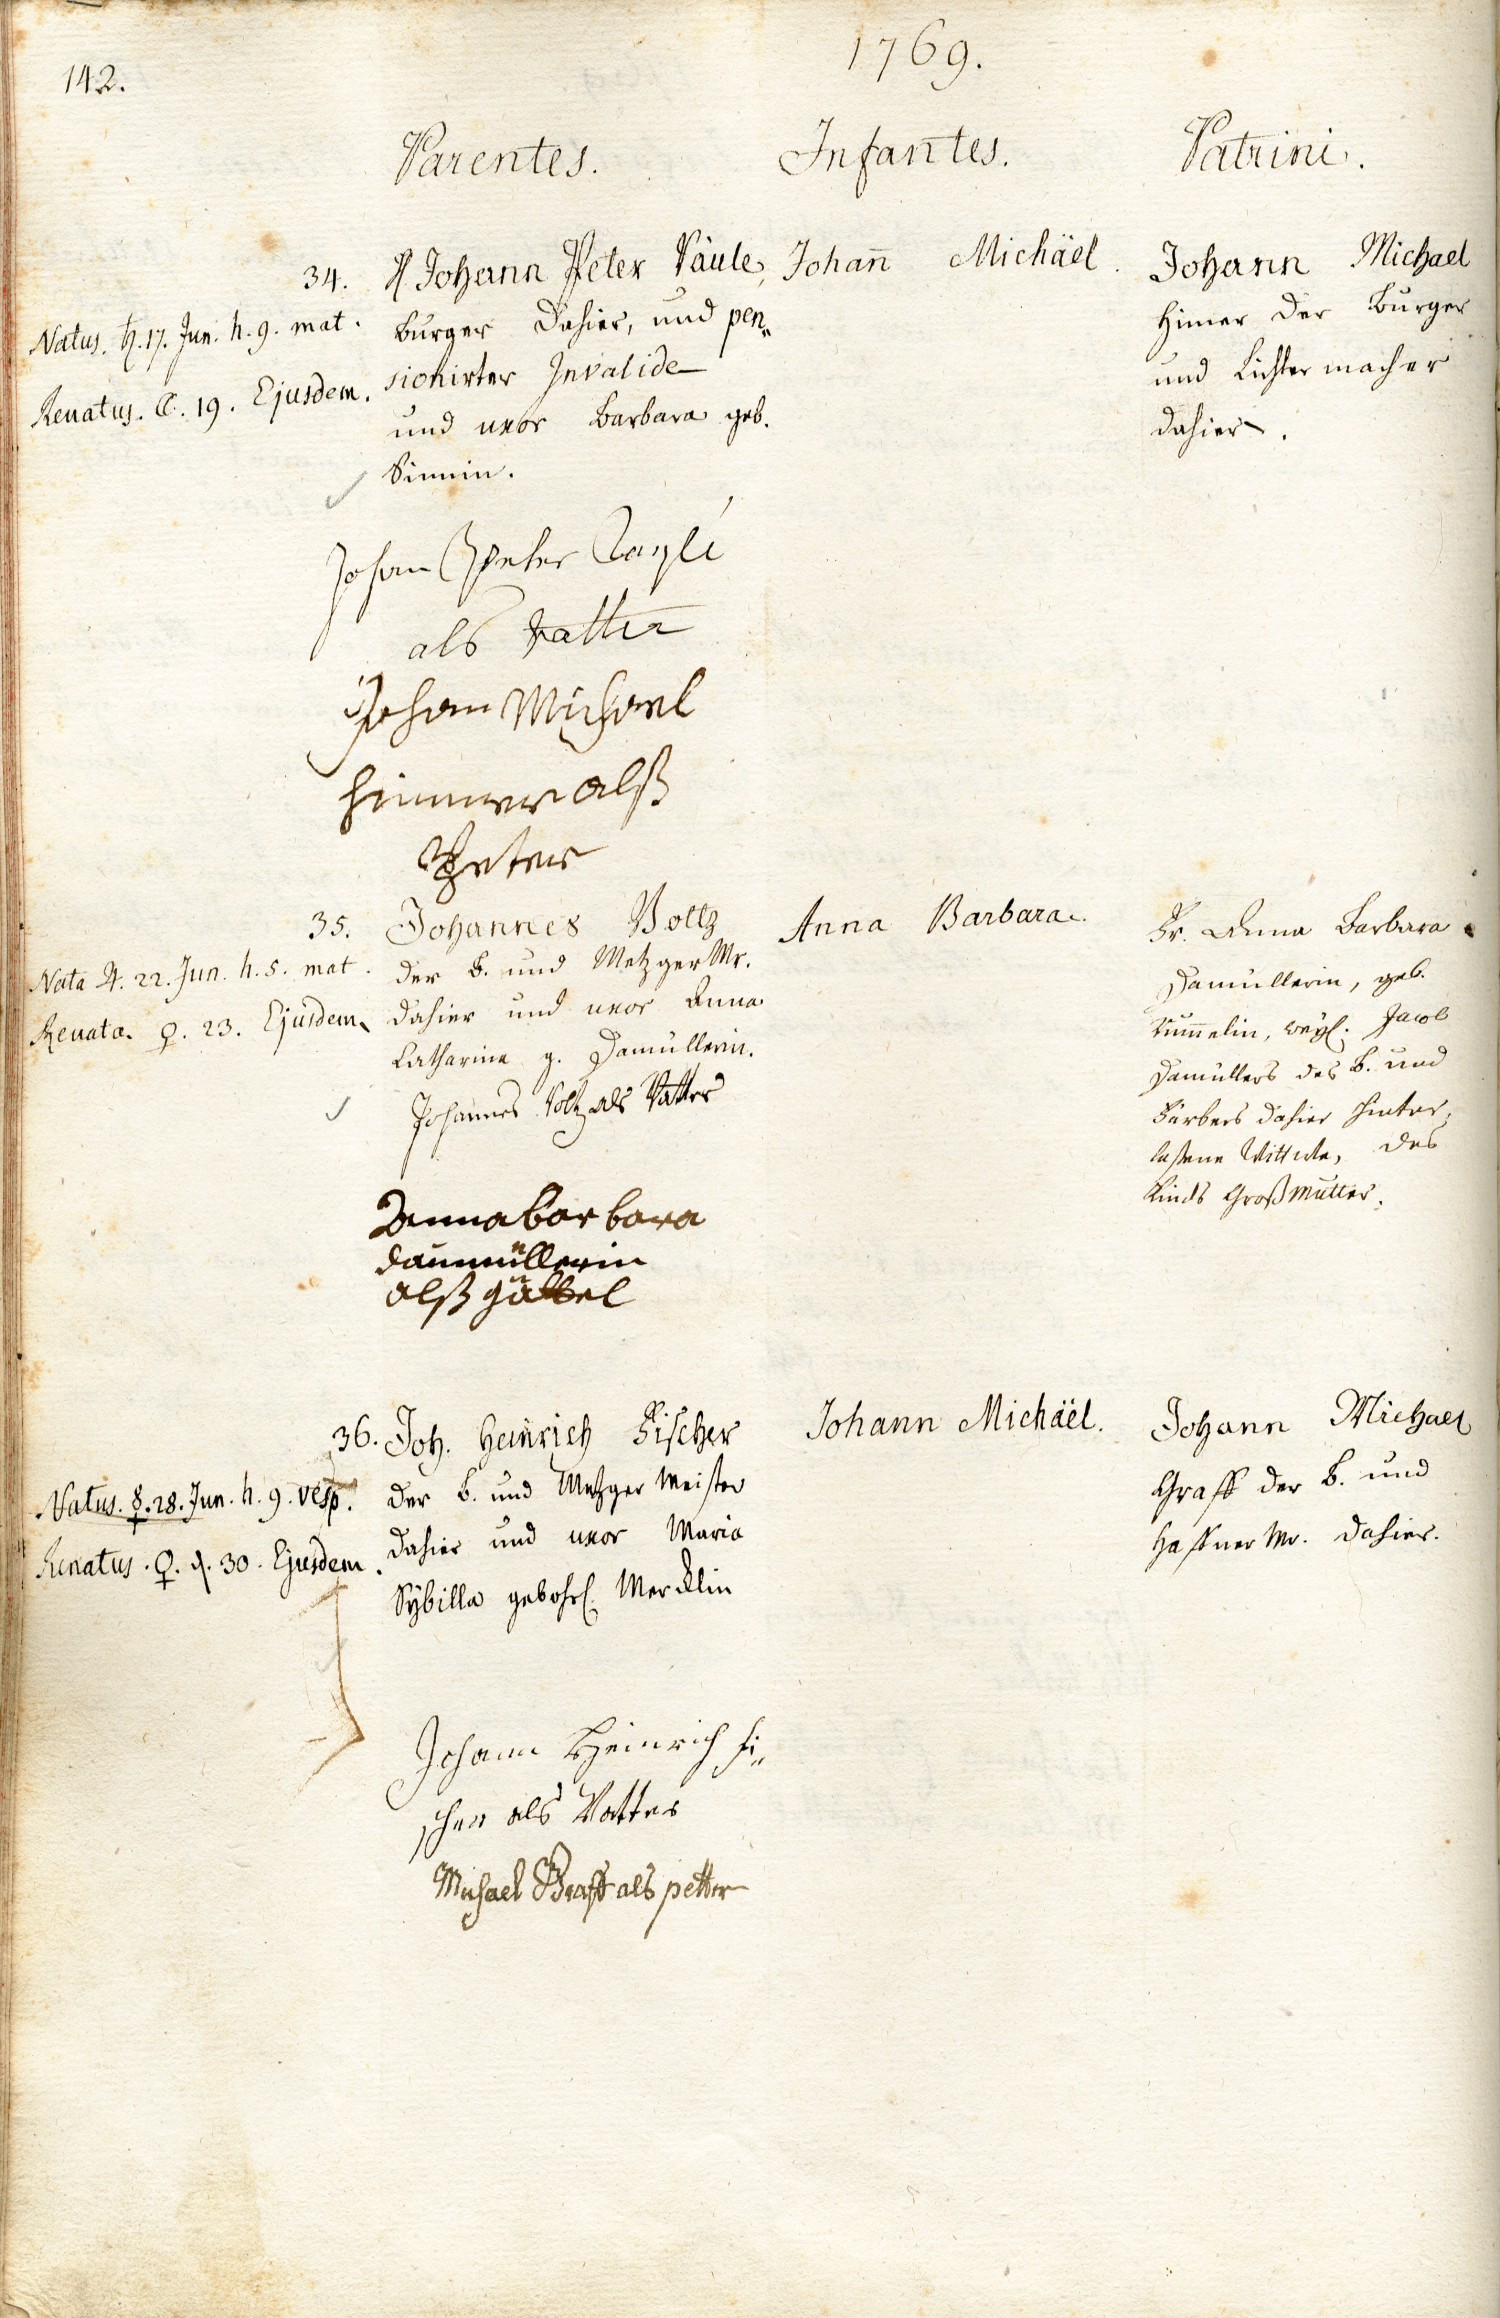 142.
1769.
Parentes.
Infantes.
Patrini.
34.
Natus. ♄. 17. Jun. h. 9. mat.
Renatus. ☾. 19. Ejusdem.
Johann Peter Väule,
burger dahier, und pen„
sionirter Invalide
und uxor Barbara geb.
Johann Michäel.
Johann Michael
Himer der burger
und Lichtermacher
dahier.
Johan Peter
als Vatter
Johan Michael
Himmer alß
Peter
35.
Nata ♃. 22. Jun. h. 5. mat.
Renata. ♀. 23. Ejusdem.
Johannes Voltz
der b. und Metzger Mr.
dahier und uxor Anna
Catharina g. Damüllerin.
Anna Barbara.
Fr. Anna Barbara
Damüllerin, geb.
Kum̄elin, weyl. Jacob
Damüllers des b. und
Färbers dahier hinter,
laßene Wittwe, des
Kinds Großmutter.
Johannes Voltz als Vatter
Anna barbara
daumüllerin
alß göttel
36.
Natus. ☿. 28. Jun. h. 9. vesp.
Renatus. ♀. d. 30. Ejusdem.
Joh. Heinrich Fischer
der b. und Metzger Meister
dahier und uxor Maria
Sÿbilla gebohrl. Mercklin
Johann Michäel.
Johann Michael
Graff der b. und
Haffner Mr. dahier.
Johann Heinrich fi„
scher als Vatter
Michael Graff als petter